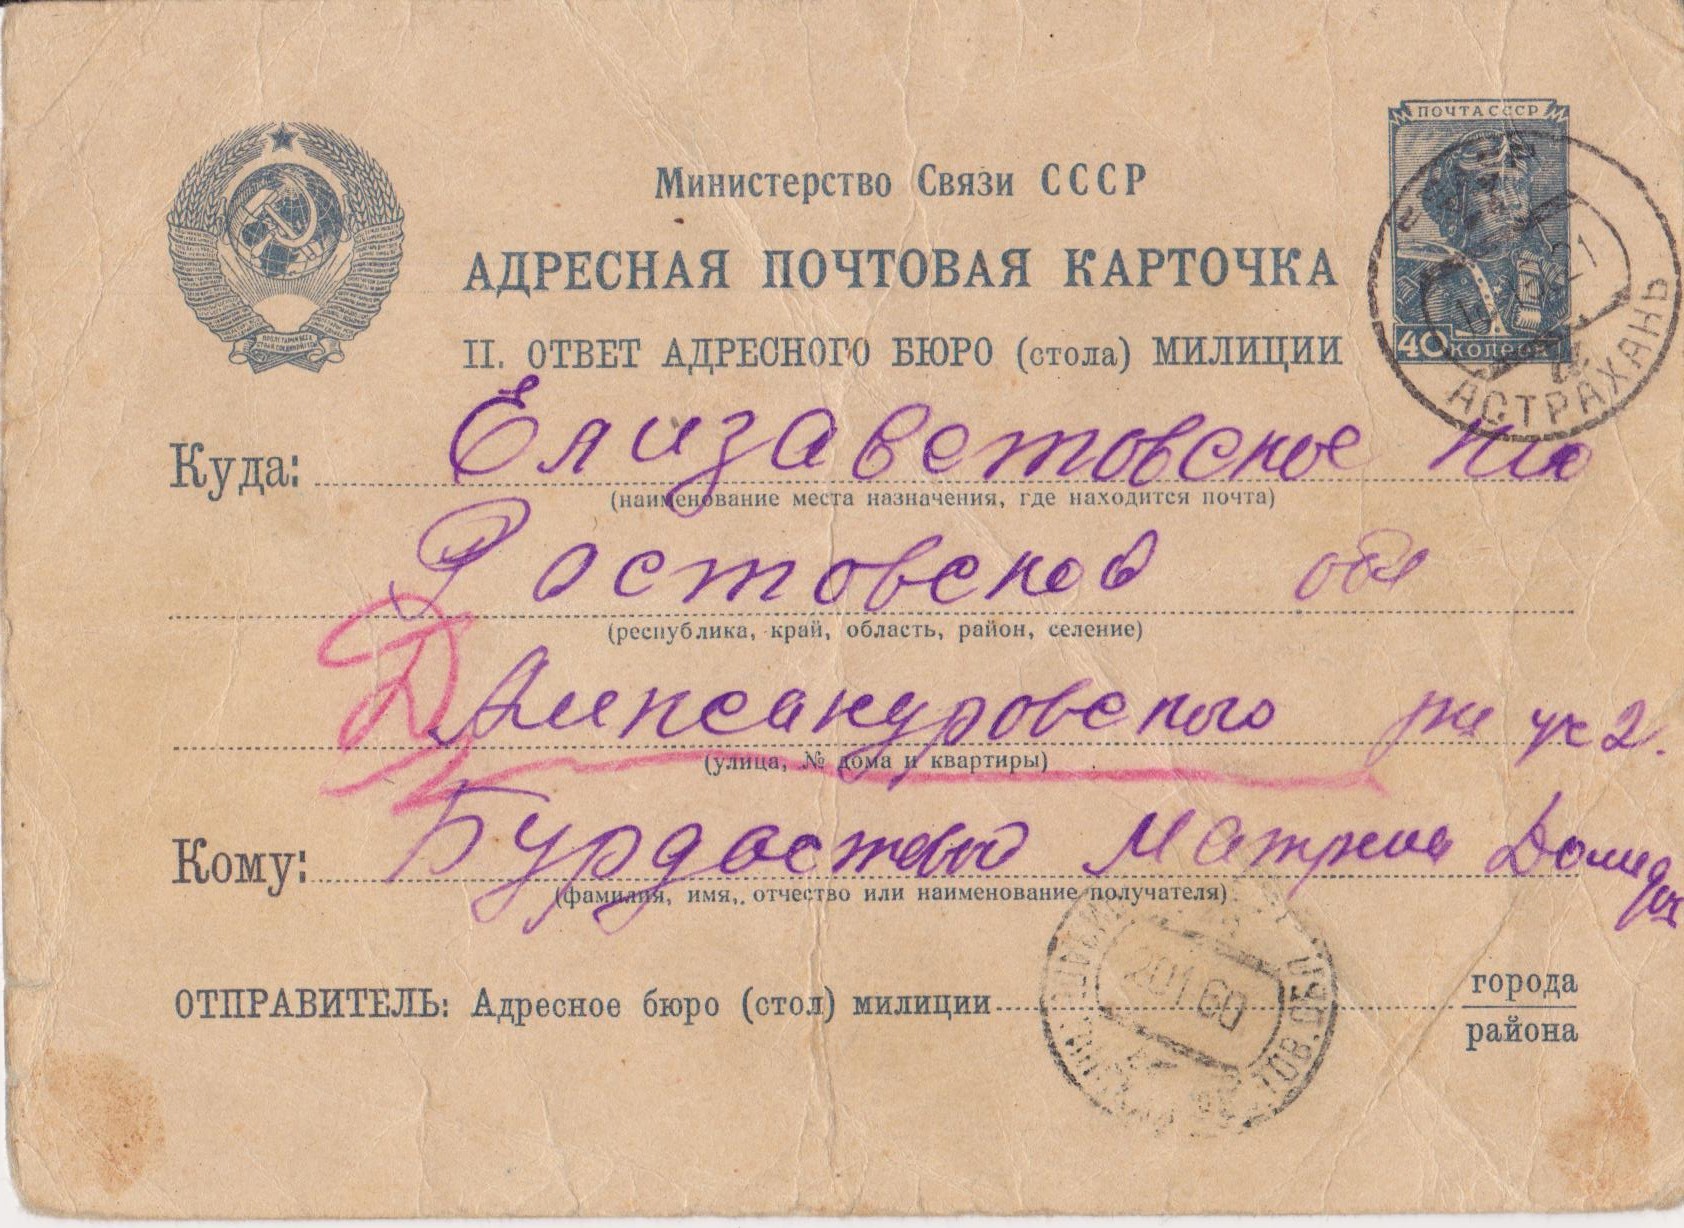 ПОЧТА СССР
Министерство Связи СССР
АДРЕСНАЯ ПОЧТОВАЯ КАРТОЧКА
II. ОТВЕТ АДРЕСНОГО БЮРО (стола) МИЛИЦИИ
40 КОПЕЕК
АСТРАХАНЬ
Куда: Елизаветовское
(наименование места назначения, где находится почта)
Ростовской обл
(республика, край, область, район, селение)
Александровского уч 2.
(улица, № дома и квартиры)
Кому: Матрена
(фамилия, имя, отчество или наименование получателя)
ОТПРАВИТЕЛЬ: Адресное бюро (стол) милиции города
района
20 1 60
ОБЛ